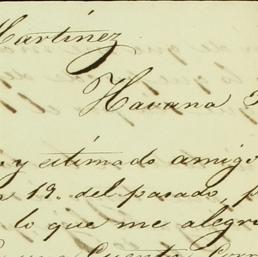 Martínez
Havana
y estimado amigo
19. del pasado, p
lo que me alegr
Cuenta Corr